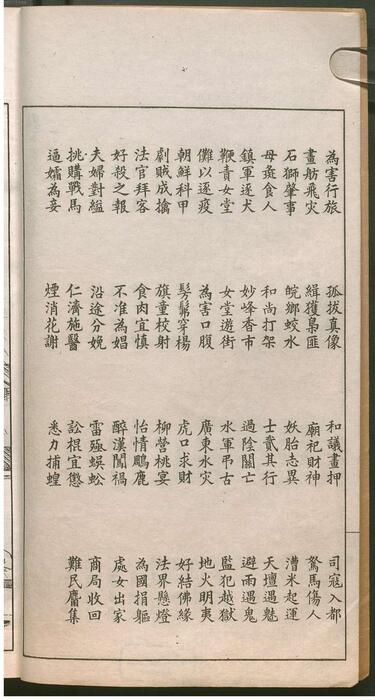 為害行旅 孤拔真像 和議畫押 司寇入都
畫舫飛灾 緝獲梟匪 廟祀財神 駑馬傷人
石獅肇事 皖鄉蛟水 妖胎志異 漕米起運
母彘食人 和尚打架 士貳其行 天壇遇魅
鎮軍逐犬 妙峰香市 過陰關亡 避雨遇鬼
鞭責女堂 女堂遊街 水軍弔古 監犯越獄
儺以逐疫 為害口腹 廣東水灾 地火明夷
朝鮮科甲 髣髴穿楊 虎口求財 好結佛緣
劇賊成擒 旗童校射 柳營桃宴 法界懸燈
法官拜客 食肉宜慎 怡情鵰鹿 為國捐軀
好殺之報 不准為娼 醉漢闖禍 處女出家
夫婦對縊 沿途分娩 雷殛蜈蚣 商局收回
挑購戰馬 仁濟施醫 訟棍宜懲 難民麕集
逼孀為妾 煙消花謝 悉力捕蝗